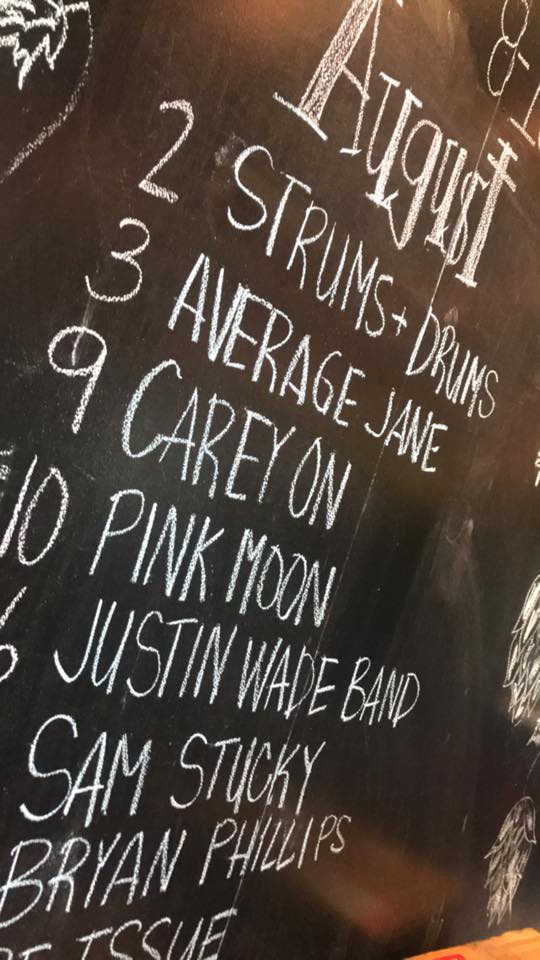 August
2 STRUMS + DRUMS
3 AVERAGE JANE
9 CAREY ON
10 PINK MOON
6 JUSTIN WADE BAND
SAM STUCKY
BRYAN PHILLIPS
ISSUE